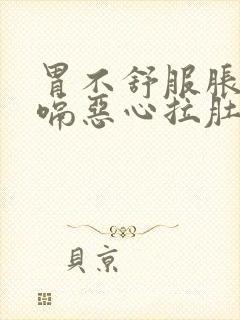 胃不舒服脹
嗝惡心拉肚
貝京